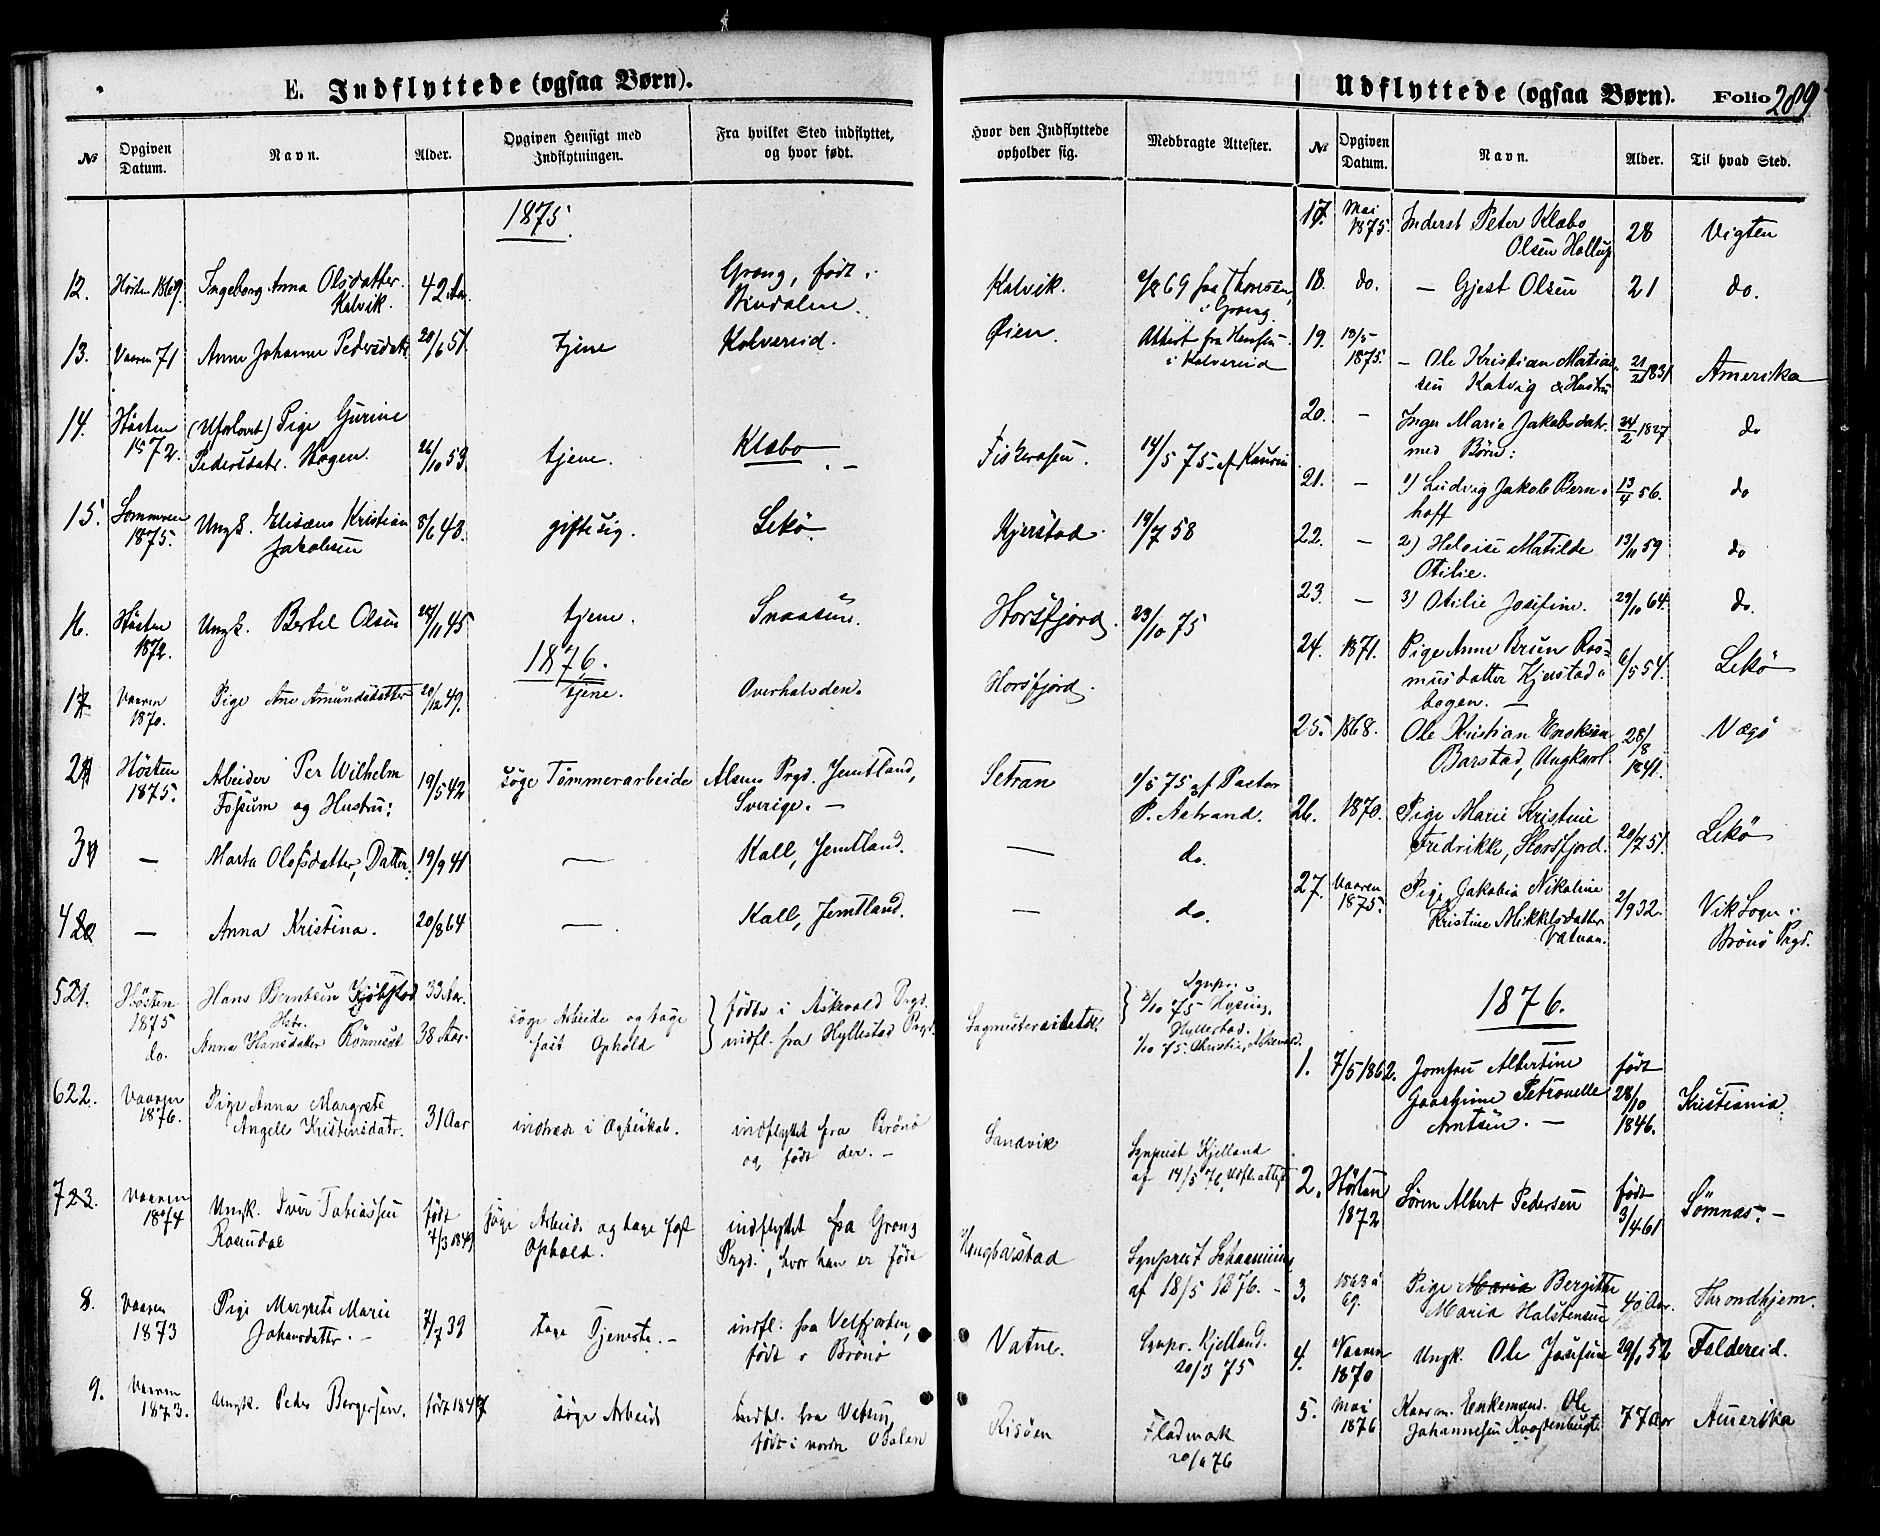 E. Indflyttede (ogsaa Børn).
№
Opgiven Datum.
Navn.
Alder.
Opgiven Hensigt med Indflytningen.
Fra hvilket Sted indflyttet, og hvor født.
Hvor den Indflyttede opholder sig.
Medbragte Attester.
1875.
12. Høsten 1869. Ingeborg Anna Olsdatter 42 Aar. Grong, født i Katvik. 69 fra Thonsen
Kalvik. Bindalen. i Grong.
13. Vaaren 71 Anne Johanne Pedersdatr 20/6 51. tjene Kolvereid. Øien. Attest fra Hensen
i Kolvereid
14. Høsten (Uforlovet) Pige Gurine
1872. Pedersdatr. Hagen. 26/10 53 tjene. Klæbo Fiskerosen. 14/5 75 af Kaurin
15. Sommeren Ungk. Elisæus Kristian 8/6 43. gifte sig. Lekö Kjerstad 19/7 58
1875. Jakobsen
16. Høsten Ungk. Bertel Olsen 24/11 45 tjene. Snaasen. Horsfjord. 23/10 75
1872.
1876.
1 Vaaren Pige Ane Amundsdatter 20/12 49. tjene. Overhalvden. Horsfjord.
1870.
2 Høsten Arbeider Per Wilhelm 19/5 42 söge Tömmerarbeide Alsens Prgd. Jemtland, Setran 1/5 75 af Pastor
1875. Fossum og Hustru: Sverige. — P. Åstrand.
3 — Marta Olofsdatter, Datter: 19/9 41 — Kall, Jemtland. — do.
4 — Anna Kristina. 20/8 64 — Kall, Jemtland. — do.
5 21. Høsten Hans Berntsen Kjöbstad 33 Aar. söge Arbeide og tage födte i Askvold Prgd. Sagmesterens 8/10 75 Hysing,
1875 Hstr. fast Ophold indfl. fra Hyllestad Prgd. Hyllestad.
do. Anna Hansdatter 38 Aar. 1/10 75. Christie, Askevold.
6 22. Vaaren Pige Anna Margrete 31 Aar indtræde i Ægteskab. indflyttet fra Brönö Sandvik Sognprest Kjelland
1876. Angell Kristensdatr. og født der. — af 14/5 76, Udfl. attest
7 23. Vaaren Ungk. Iver Tobiassen født söge Arbeide og tage fast indflyttet fra Grong Hongbarstad Sognprest Schaanning
1874 Rosendal 7/3 1849 Ophold. Prgd., hvor han er født af 18/5 1876. —
8. Vaaren Pige Margrete Marie 7/7 39 tage Tjeneste. — indfl. fra Velfjorden, Vatne. Sognpr. Kjelland.
1873 Johansdattr. — født i Brönö 20/3 75
9. Vaaren Ungk. Peder Bergersen. født 1847 söge Arbeide Indfl. fra Vefsen, Risöen Fladmark
1873. født i nordre Odalen 76
Udflyttede (ogsaa Børn). Folio 289
№
Opgiven Datum.
Navn.
Alder.
Til hvad Sted.
17. Mai Inderst Peter Klæbo 28 Vigten
1875. Olsen Hollup
18. do. — Gjest Olsen 21 do.
19. 13/5
1875. — Ole Kristian Matias- 21/2 1831 Amerika
sen Katvig & Hustru
20. — Inger Marie Jakobsdatr. 24/2 1827 do
med Børn:
21. — 1) Ludvig Jakob Bern- 13/4 56. do
hoff
22. — 2) Heloise Matilde 13/11 59 do
Otilie.
23. — 3) Otilie Josefine. 29/10 64. do.
24. 1871. Pige Anne Brun Ras- 6/5 54. Lekö
musdatter Kjerstad-
bogen. —
25. 1868. Ole Kristian Enoksen 28/8 Vægö
Barstad, Ungkarl. 1841.
26. 1870. Pige Marie Kristine
Fredrikke, Horsfjord. 20/7 51. Lekö
27. Vaaren Pige Jakobia Nikoline 2/9 32. Vik Sogn i
1875. Kristine Mikkelsdatter Brönö Prgd.
Vatnan.
1876.
1. 7/5 1862. Jomfru Albertine født
Joachime Petronelle 28/10 Kristiania.
Arntsen. — 1846.
2. Høsten Sören Albert Pedersen født Sömnæs. —
1872 3/4 61
3. 1868 a Pige Maria Bergitte 40 Aar. Throndhjem.
69. Maria Halstensen
4. Vaaren Ungk. Ole Josefsen 29/1 52 Foldereid.
1870
5. Mai Kaarm. Enkemand Ole 77 Aar Amerika
1876 Johannesen